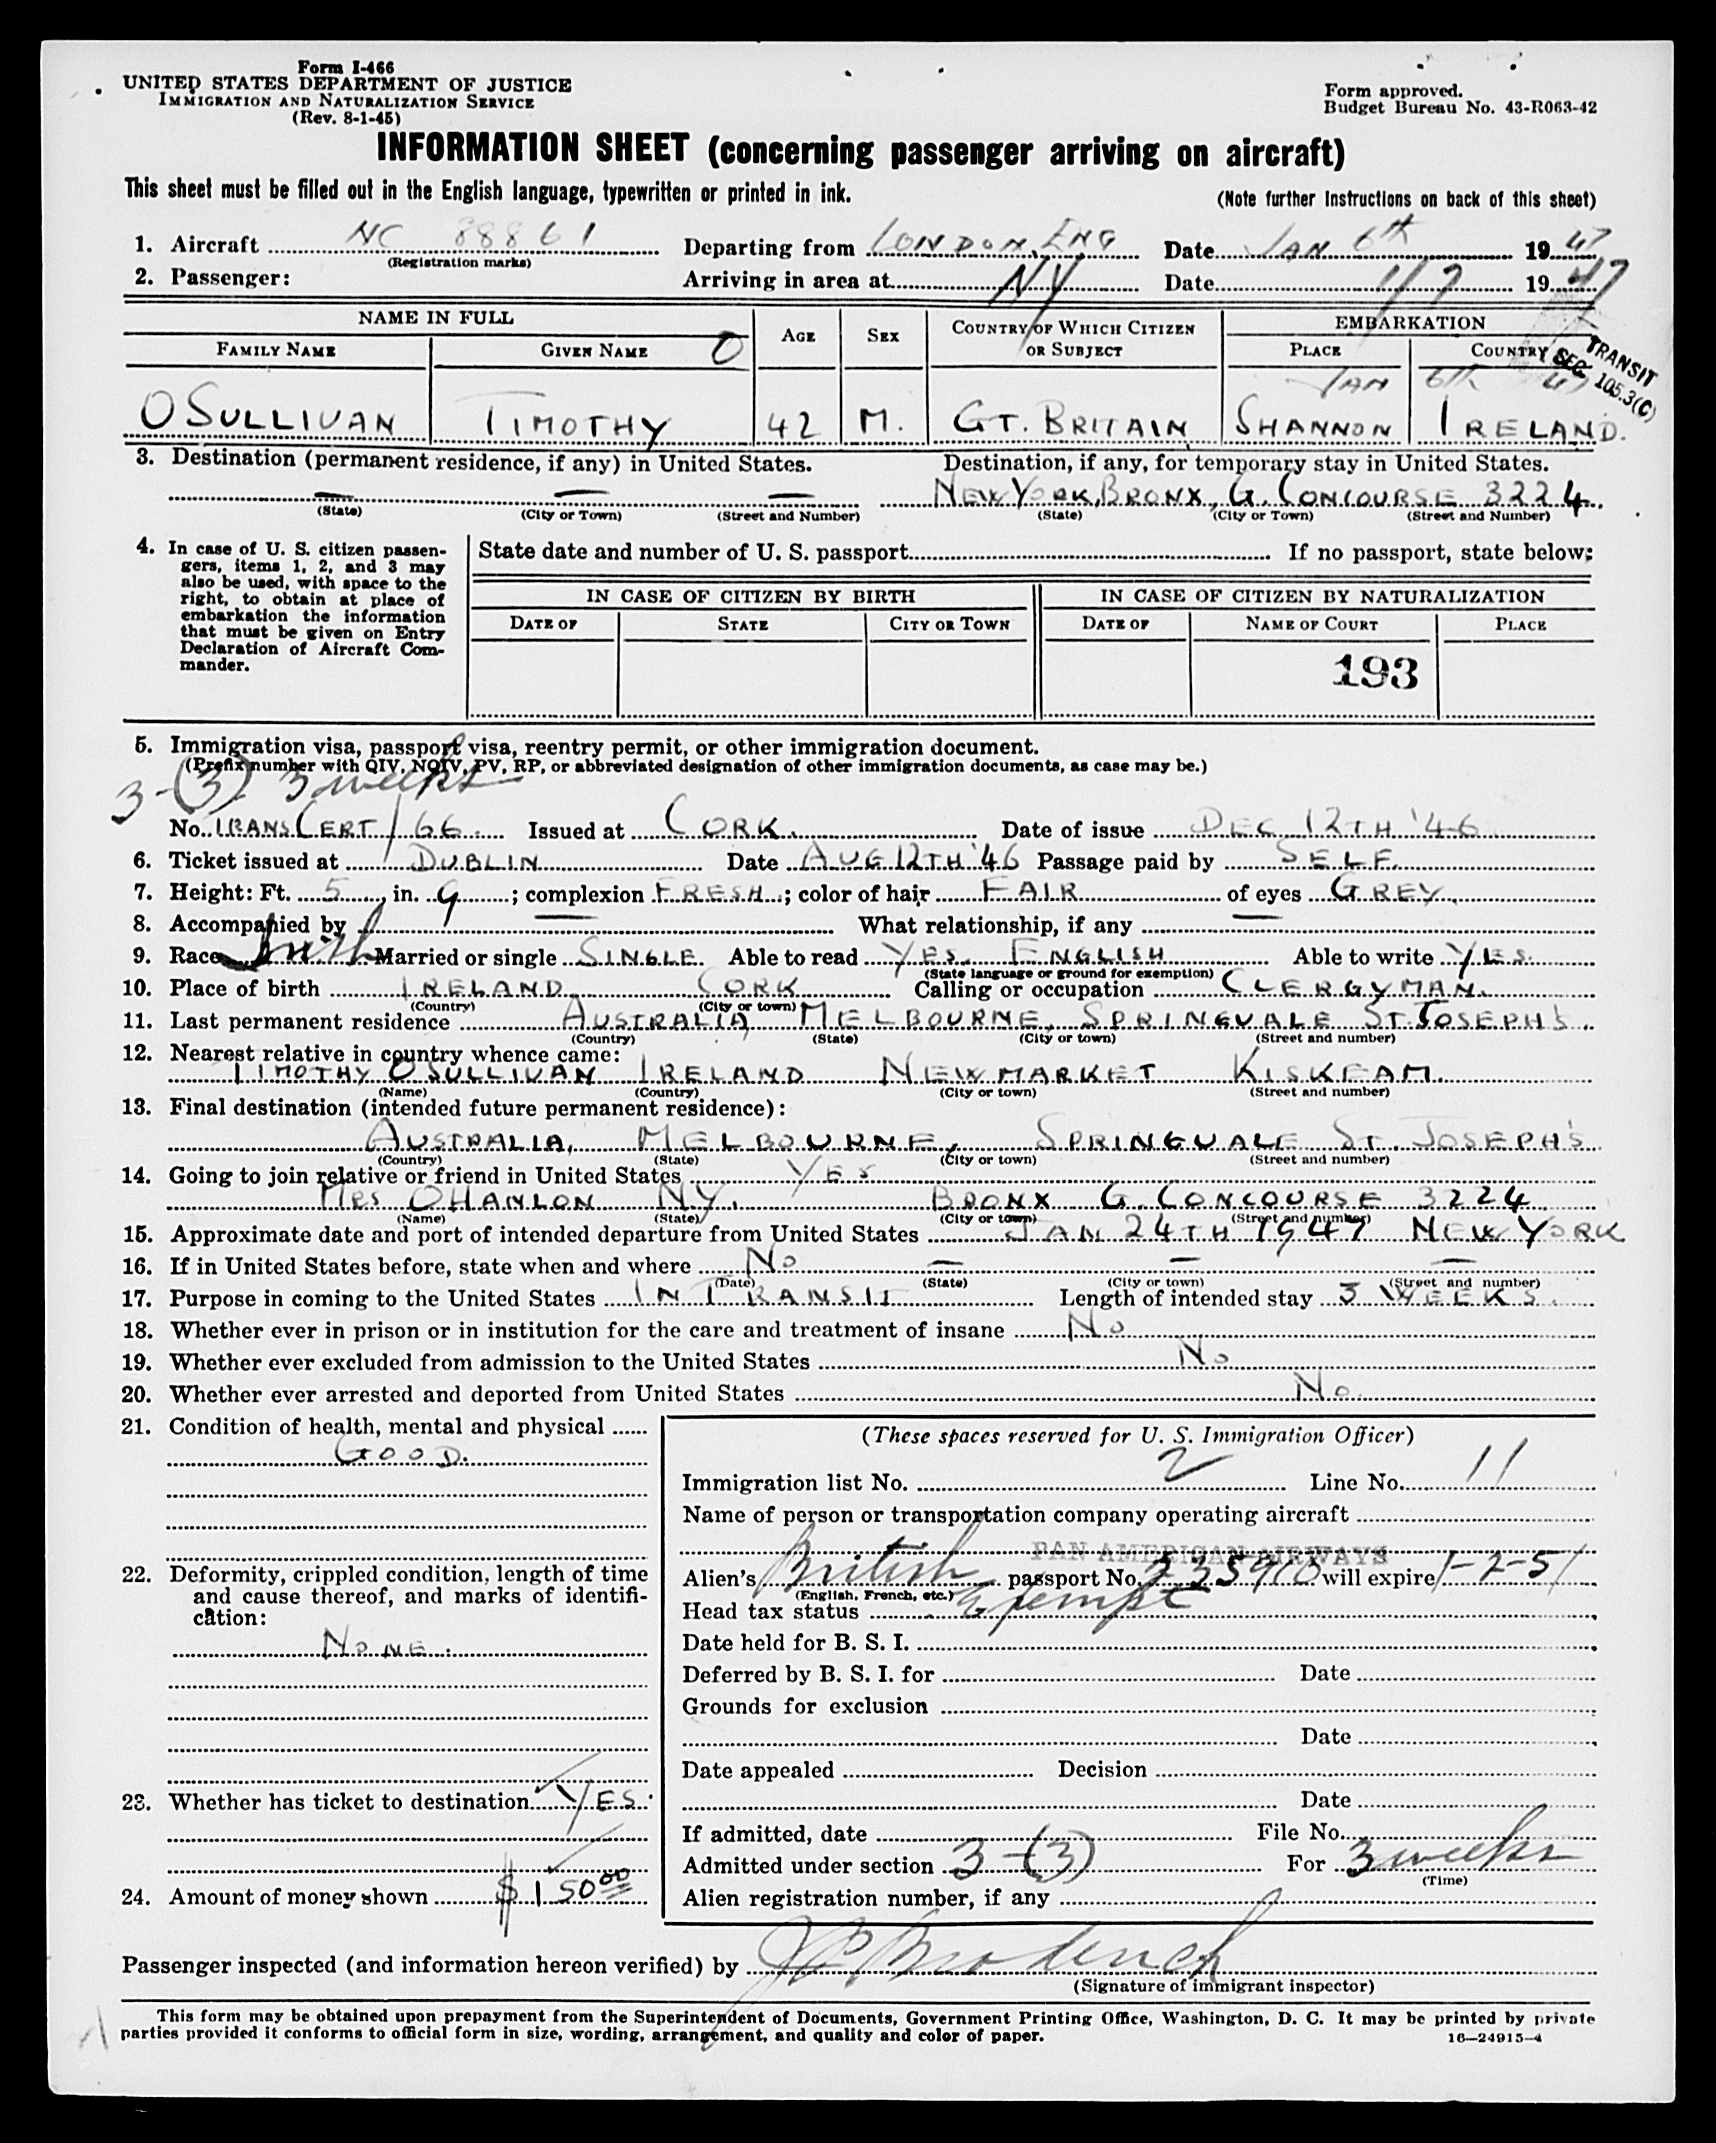 Form I-466
UNITED STATES DEPARTMENT OF JUSTICE
IMMIGRATION AND NATURALIZATION SERVICE
(Rev. 8-1-45)
Form approved.
Budget Bureau No. 43-R063-42
INFORMATION SHEET (concerning passenger arriving on aircraft)
This sheet must be filled out in the English language, typewritten or printed in ink.
(Note further instructions on back of this sheet)
1. Aircraft NC 88861 Departing from LONDON, ENG Date JAN 6th 1947
(Registration marks)
2. Passenger: Arriving in area at NY Date 1/7 1947
NAME IN FULL AGE SEX COUNTRY OF WHICH CITIZEN OR SUBJECT EMBARKATION
FAMILY NAME GIVEN NAME O PLACE COUNTRY
TRANSIT
SEC. 105.3(C)
JAN 6th 47
OSULLIVAN TIMOTHY 42 M. GT. BRITAIN SHANNON IRELAND.
3. Destination (permanent residence, if any) in United States. Destination, if any, for temporary stay in United States.
— — — NEW YORK, BRONX, G. CONCOURSE 3224.
(State) (City or Town) (Street and Number) (State) (City or Town) (Street and Number)
4. In case of U. S. citizen passengers, items 1, 2, and 3 may also be used, with space to the right, to obtain at place of embarkation the information that must be given on Entry Declaration of Aircraft Commander.
State date and number of U. S. passport If no passport, state below:
IN CASE OF CITIZEN BY BIRTH IN CASE OF CITIZEN BY NATURALIZATION
DATE OF STATE CITY OR TOWN DATE OF NAME OF COURT PLACE
193
5. Immigration visa, passport visa, reentry permit, or other immigration document.
(Prefix number with QIV, NQIV, PV, RP, or abbreviated designation of other immigration documents, as case may be.)
3-(3) 3 weeks
No. TRANS CERT/66 Issued at CORK. Date of issue DEC 12TH '46
6. Ticket issued at DUBLIN Date AUG 12TH '46 Passage paid by SELF.
7. Height: Ft. 5, in. 9; complexion FRESH; color of hair FAIR of eyes GREY.
8. Accompanied by — What relationship, if any —
9. Race Irish Married or single SINGLE. Able to read YES. ENGLISH Able to write YES.
(State language or ground for exemption)
10. Place of birth IRELAND CORK Calling or occupation CLERGYMAN.
(Country) (City or town)
11. Last permanent residence AUSTRALIA, MELBOURNE, SPRINGVALE ST. JOSEPH'S.
(Country) (State) (City or town) (Street and number)
12. Nearest relative in country whence came:
TIMOTHY OSULLIVAN IRELAND NEWMARKET KISKEAM.
(Name) (Country) (City or town) (Street and number)
13. Final destination (intended future permanent residence):
AUSTRALIA, MELBOURNE, SPRINGVALE ST. JOSEPH'S
(Country) (State) (City or town) (Street and number)
14. Going to join relative or friend in United States YES
MRS OHANLON N.Y. BRONX G. CONCOURSE 3224
(Name) (State) (City or town) (Street and number)
15. Approximate date and port of intended departure from United States JAN 24TH 1947 NEW YORK
16. If in United States before, state when and where NO — — —
(Date) (State) (City or town) (Street and number)
17. Purpose in coming to the United States IN TRANSIT Length of intended stay 3 WEEKS.
18. Whether ever in prison or in institution for the care and treatment of insane NO
19. Whether ever excluded from admission to the United States NO
20. Whether ever arrested and deported from United States NO.
21. Condition of health, mental and physical
GOOD.
22. Deformity, crippled condition, length of time and cause thereof, and marks of identification:
NONE.
23. Whether has ticket to destination YES.
24. Amount of money shown $150 00
(These spaces reserved for U. S. Immigration Officer)
Immigration list No. 2 Line No. 11
Name of person or transportation company operating aircraft
PAN AMERICAN AIRWAYS
Alien's British passport No. 235910 will expire 1-2-51
(English, French, etc.)
Head tax status Exempt
Date held for B. S. I.
Deferred by B. S. I. for Date
Grounds for exclusion
Date
Date appealed Decision
Date
If admitted, date File No.
Admitted under section 3-(3) For 3 weeks
(Time)
Alien registration number, if any
Passenger inspected (and information hereon verified) by
(Signature of immigrant inspector)
This form may be obtained upon prepayment from the Superintendent of Documents, Government Printing Office, Washington, D. C. It may be printed by private
parties provided it conforms to official form in size, wording, arrangement, and quality and color of paper.
16—24915-4